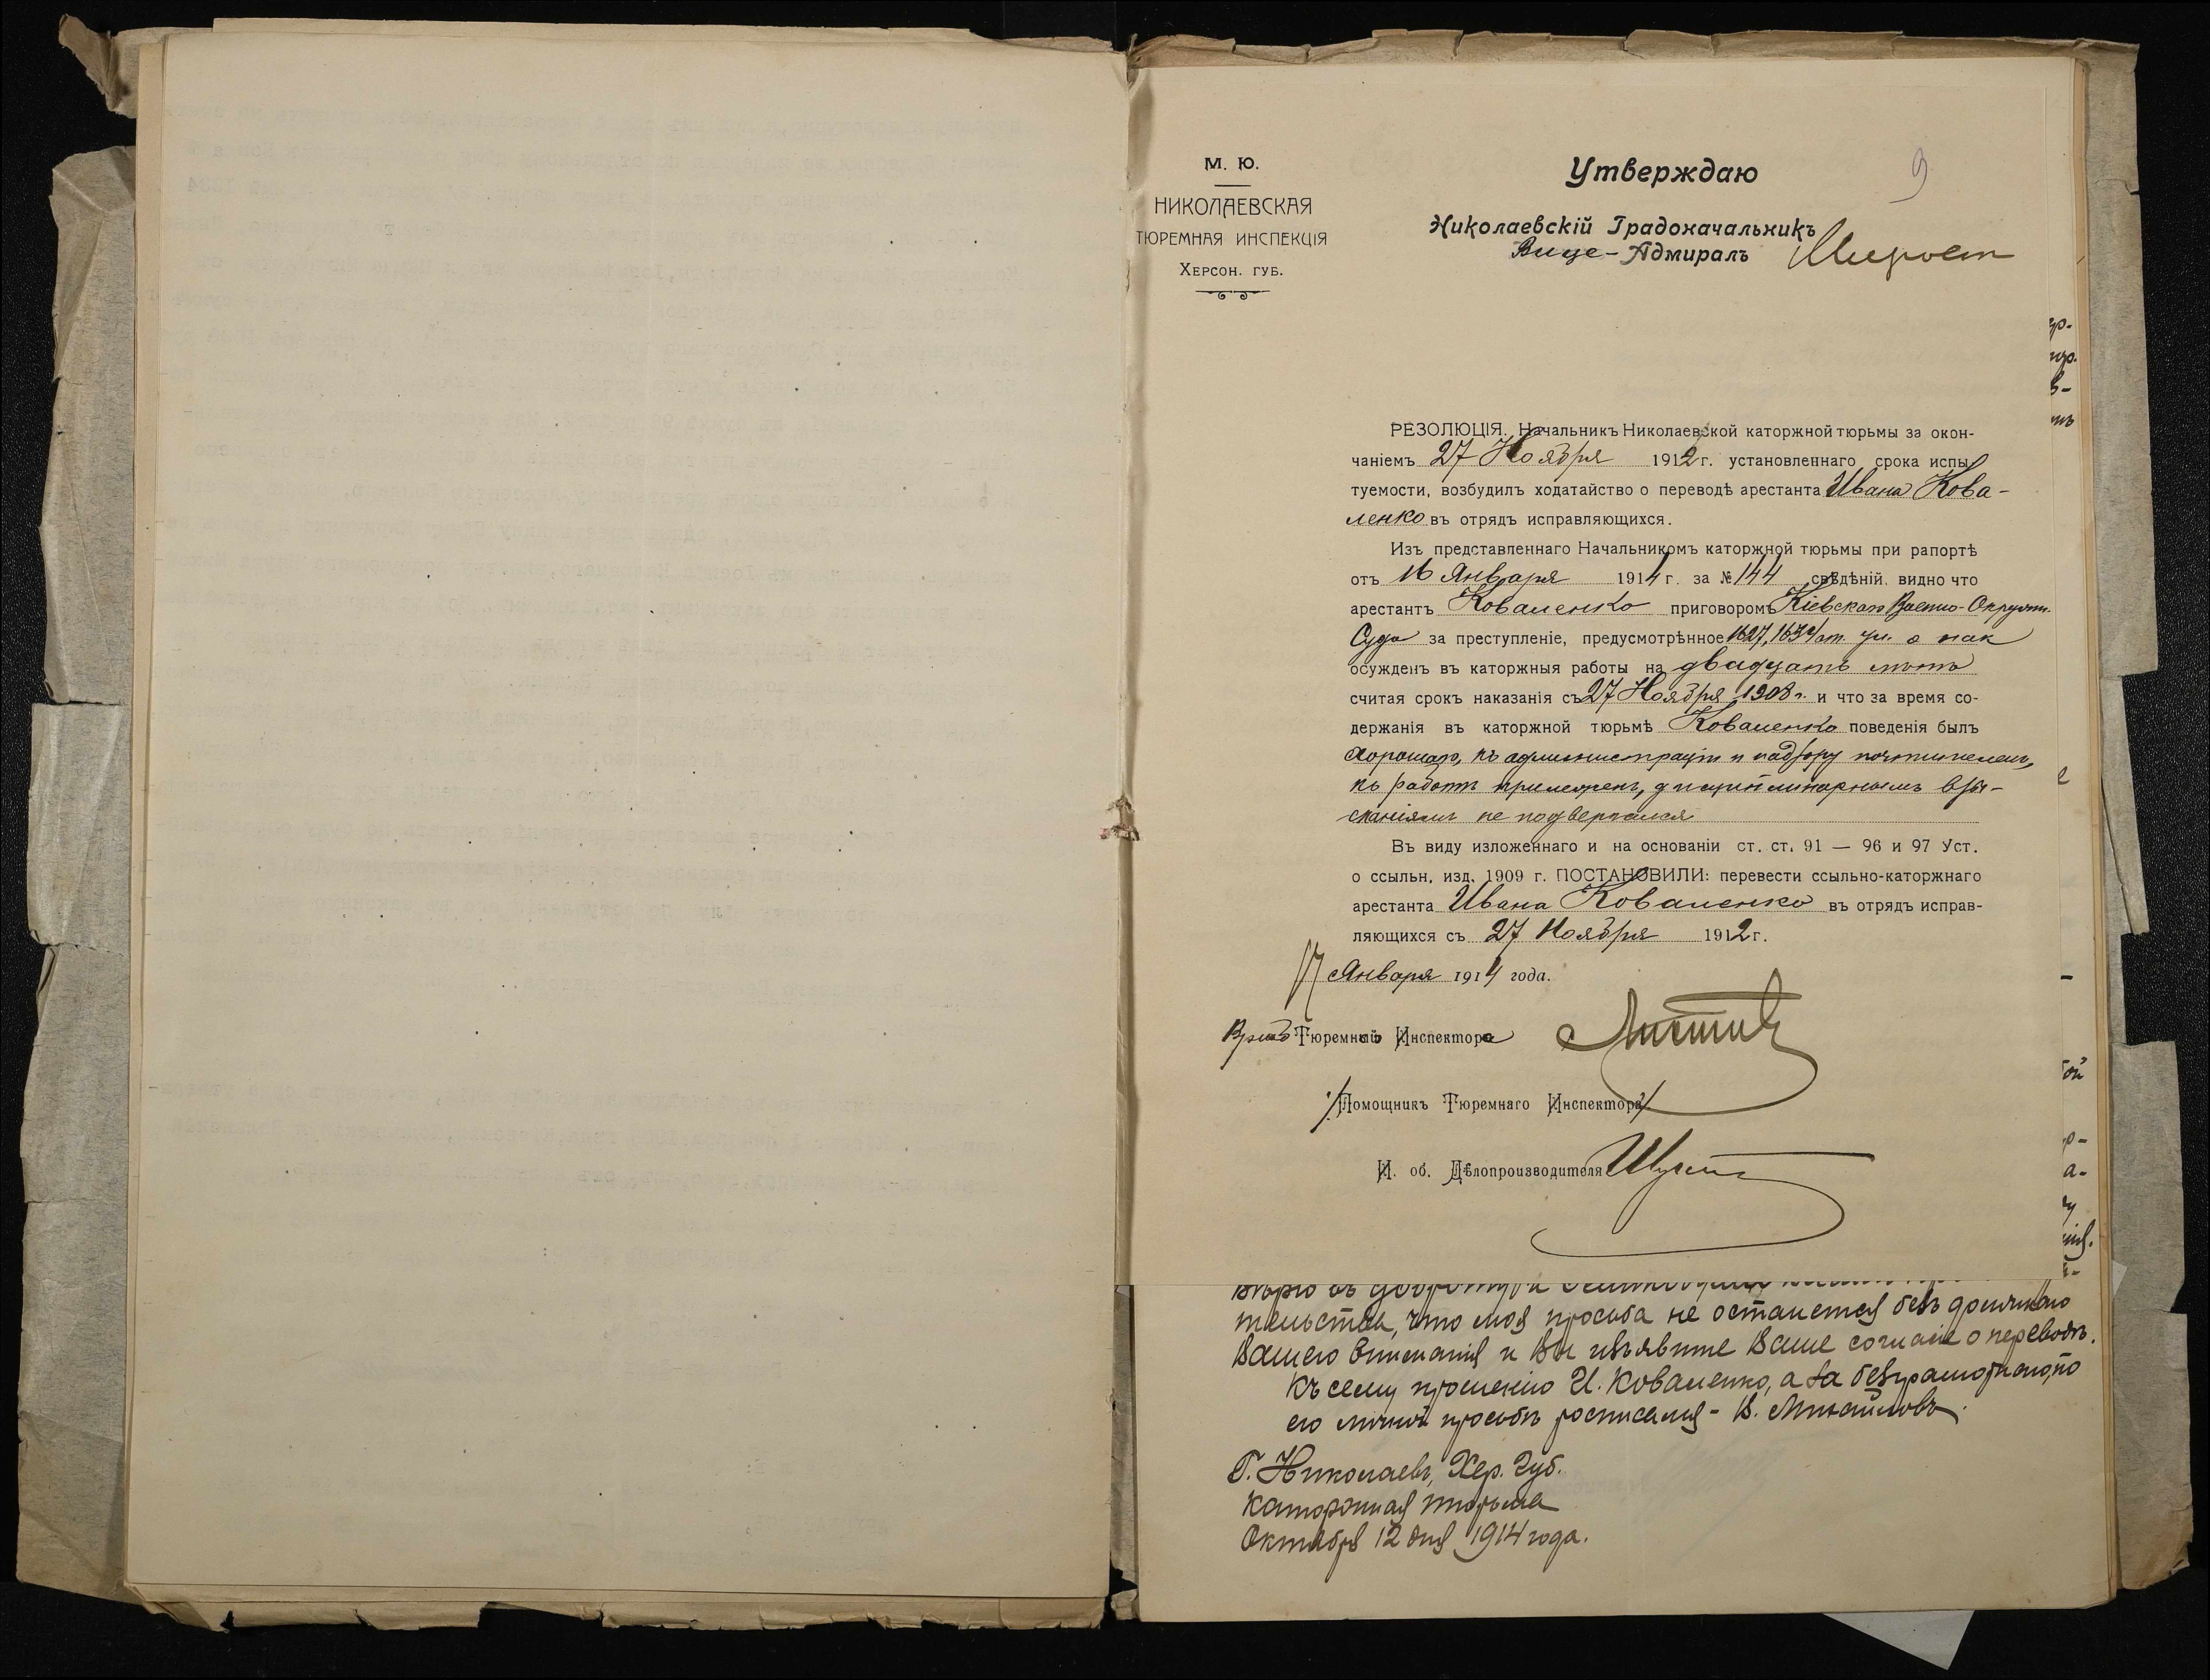 9
М. Ю.
НИКОЛАЕВСКАЯ
ТЮРЕМНАЯ ИНСПЕКЦІЯ
ХЕРСОН. ГУБ.
Утверждаю
Николаевскій Градоначальникъ
Вице-Адмиралъ
РЕЗОЛЮЦІЯ. Начальникъ Николаевской каторжной тюрьмы за окон-
чаніемъ 27 Ноября 1912 г. установленнаго срока испы
туемости, возбудилъ ходатайство о переводѣ арестанта Ивана Кова-
ленко въ отрядъ исправляющихся.
Изъ представленнаго Начальникомъ каторжной тюрьмы при рапортѣ
отъ 16 Января 1914 г. за № 144 свѣдѣній видно что
арестантъ Коваленко приговоромъ Кіевскаго Военно-Окружн.
Суда за преступленіе, предусмотрѣнное 1627, 1632 ст. ул. о нак
осужденъ въ каторжныя работы на двадцать лѣтъ
считая срокъ наказанія съ 27 Ноября 1908 г. и что за время со-
держанія въ каторжной тюрьмѣ Коваленко поведенія былъ
хорошаго, къ администраціи и надзору почтителенъ,
къ работѣ прилеженъ, дисциплинарнымъ взы-
сканіямъ не подвергался
Въ виду изложеннаго и на основаніи ст. ст. 91 — 96 и 97 Уст.
о ссыльн. изд. 1909 г. ПОСТАНОВИЛИ: перевести ссыльно-каторжнаго
арестанта Ивана Коваленко въ отрядъ исправ-
ляющихся съ 27 Ноября 1912 г.
17 Января 1914 года.
Врид Тюремнаго Инспектора
/Помощникъ Тюремнаго Инспектора/
И. об. Дѣлопроизводителя
тельства, что моя просьба не останется безъ должнаго
Вашего вниманія и Вы изъявите Ваше согласіе о переводѣ.
Къ сему прошенію И. Коваленко, а за безграмотнаго, по
его личной просьбѣ росписался - В. Михайловъ.
Г. Николаевъ, Хер. Губ.
Каторжная тюрьма
Октября 12 дня 1914 года.